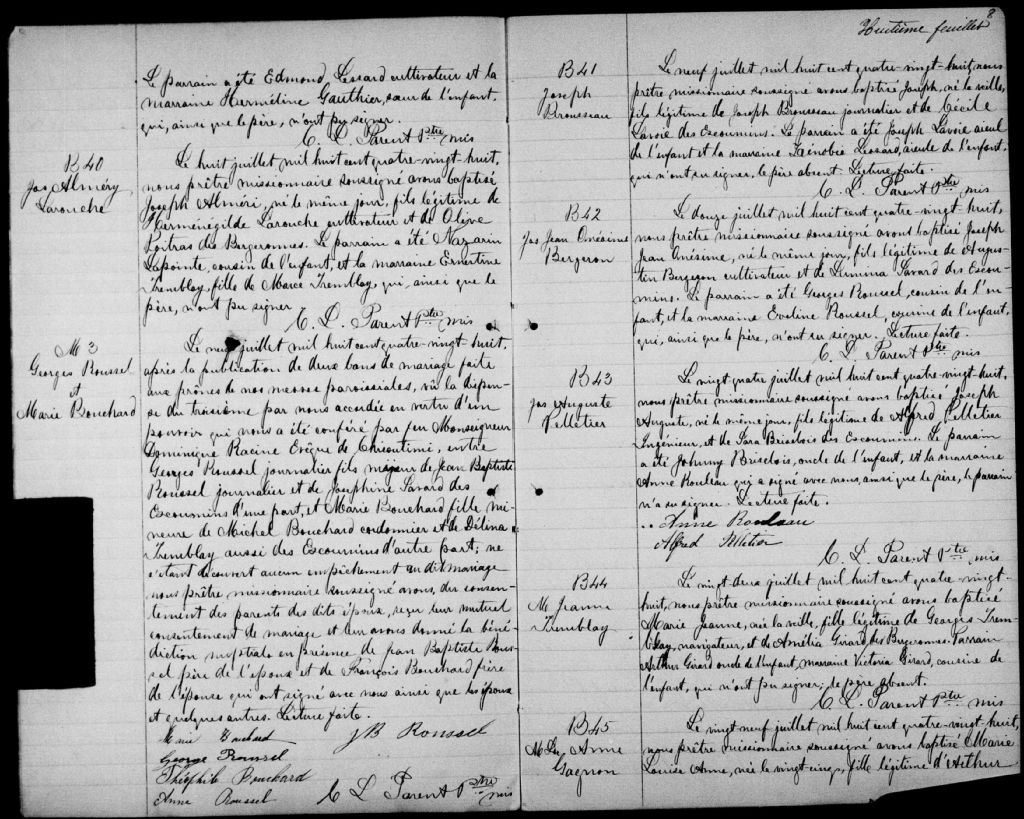 Le parrain a été Edmond Lessard cultivateur et la
marraine Herméline Gauthier, sœur de l'enfant,
qui, ainsi que le père, n'ont pu signer.
C. L. Parent Ptre mis
B40
Jos Alméry
Larouche
Le huit juillet mil huit cent quatre-vingt-huit,
nous prêtre missionnaire soussigné avons baptisé
Joseph Alméri, né le même jour, fils légitime de
Herménégilde Larouche cultivateur et de Olive
Foitras des Bergeronnes. Le parrain a été Nazarin
Lapointe, cousin de l'enfant, et la marraine Ernestine
Tremblay, fille de Marce Tremblay, qui, ainsi que le
père, n'ont pu signer
C. L. Parent Ptre mis
M 3
Georges Roussel
et
Marie Bouchard
Le neuf juillet mil huit cent quatre-vingt-huit,
après la publication de deux bans de mariage faite
aux prônes de nos messes paroissiales, vû la dispen-
se du troisième par nous accordée en vertu d'un
pouvoir qui nous a été conféré par feu Monseigneur
Dominique Racine Evêque de Chicoutimi, entre
Georges Roussel journalier fils majeur de Jean Baptiste
Roussel journalier et de Josephine Savard des
Escoumins d'une part, et Marie Bouchard fille mi-
neure de Michel Bouchard cordonnier et de Délina
Tremblay aussi des Escoumins d'autre part; ne
s'étant découvert aucun empêchement au dit mariage
nous prêtre missionnaire soussigné avons, du consen-
tement des parents des dits époux, reçu leur mutuel
consentement de mariage et leur avons donné la béné-
diction nuptiale en présence de Jean Baptiste Rous-
sel père de l'époux et de François Bouchard frère
de l'épouse qui ont signé avec nous ainsi que les époux
et quelques autres. Lecture faite.
Marie Bouchard
JB Roussel
George Roussel
Théophile Bouchard
Anne Roussel
C L Parent Ptre mis
8
Huitième feuillet
B41
Joseph
Brousseau
Le neuf juillet mil huit cent quatre-vingt-huit, nous
prêtre missionnaire soussigné avons baptisé Joseph, né la veille,
fils légitime de Joseph Brousseau journalier et de Cécile
Lavoie des Escoumins. Le parrain a été Joseph Lavoie aïeul
de l'enfant et la marraine Zénobie Lessard, aïeule de l'enfant,
qui n'ont su signer, le père absent. Lecture faite.
C. L. Parent Ptre mis
B42
Jos Jean Onésime
Bergeron
Le douze juillet mil huit cent quatre-vingt-huit,
nous prêtre missionnaire soussigné avons baptisé Joseph
Jean Onésime, né le même jour, fils légitime de Augus-
tin Bergeron cultivateur et de Domina Savard des Escou-
mins. Le parrain a été Georges Roussel, cousin de l'en-
fant, et la marraine Eveline Roussel, cousine de l'enfant,
qui, ainsi que le père, n'ont su signer. Lecture faite.
C. L. Parent Ptre mis
B43
Jos Auguste
Pelletier
Le vingt-quatre juillet mil huit cent quatre-vingt-huit,
nous prêtre missionnaire soussigné avons baptisé Joseph
Auguste, né le même jour, fils légitime de Alfred Pelletier
Ingénieur, et de Sara Brisebois des Escoumins. Le parrain
a été Johnny Brisebois, oncle de l'enfant, et la marraine
Anne Rouleau qui a signé avec nous, ainsi que le père, le parrain
n'a su signer. Lecture faite.
Anne Rouleau
Alfred Pelletier
C. L. Parent Ptre mis
B44
M Jeanne
Tremblay
Le vingt-deux juillet mil huit cent quatre-vingt-
huit, nous prêtre missionnaire soussigné avons baptisé
Marie Jeanne, née la veille, fille légitime de Georges Trem-
blay, navigateur, et de Amélia Girard des Bergeronnes. Parrain
Arthur Girard oncle de l'enfant, marraine Victoria Girard, cousine de
l'enfant, qui n'ont pu signer; le père absent.
C. L. Parent Ptre mis
B45
M Lse Anne
Gagnon
Le vingt-neuf juillet mil huit cent quatre-vingt-huit,
nous prêtre missionnaire soussigné avons baptisé Marie
Louise Anne, née le vingt-cinq, fille légitime d'Arthur